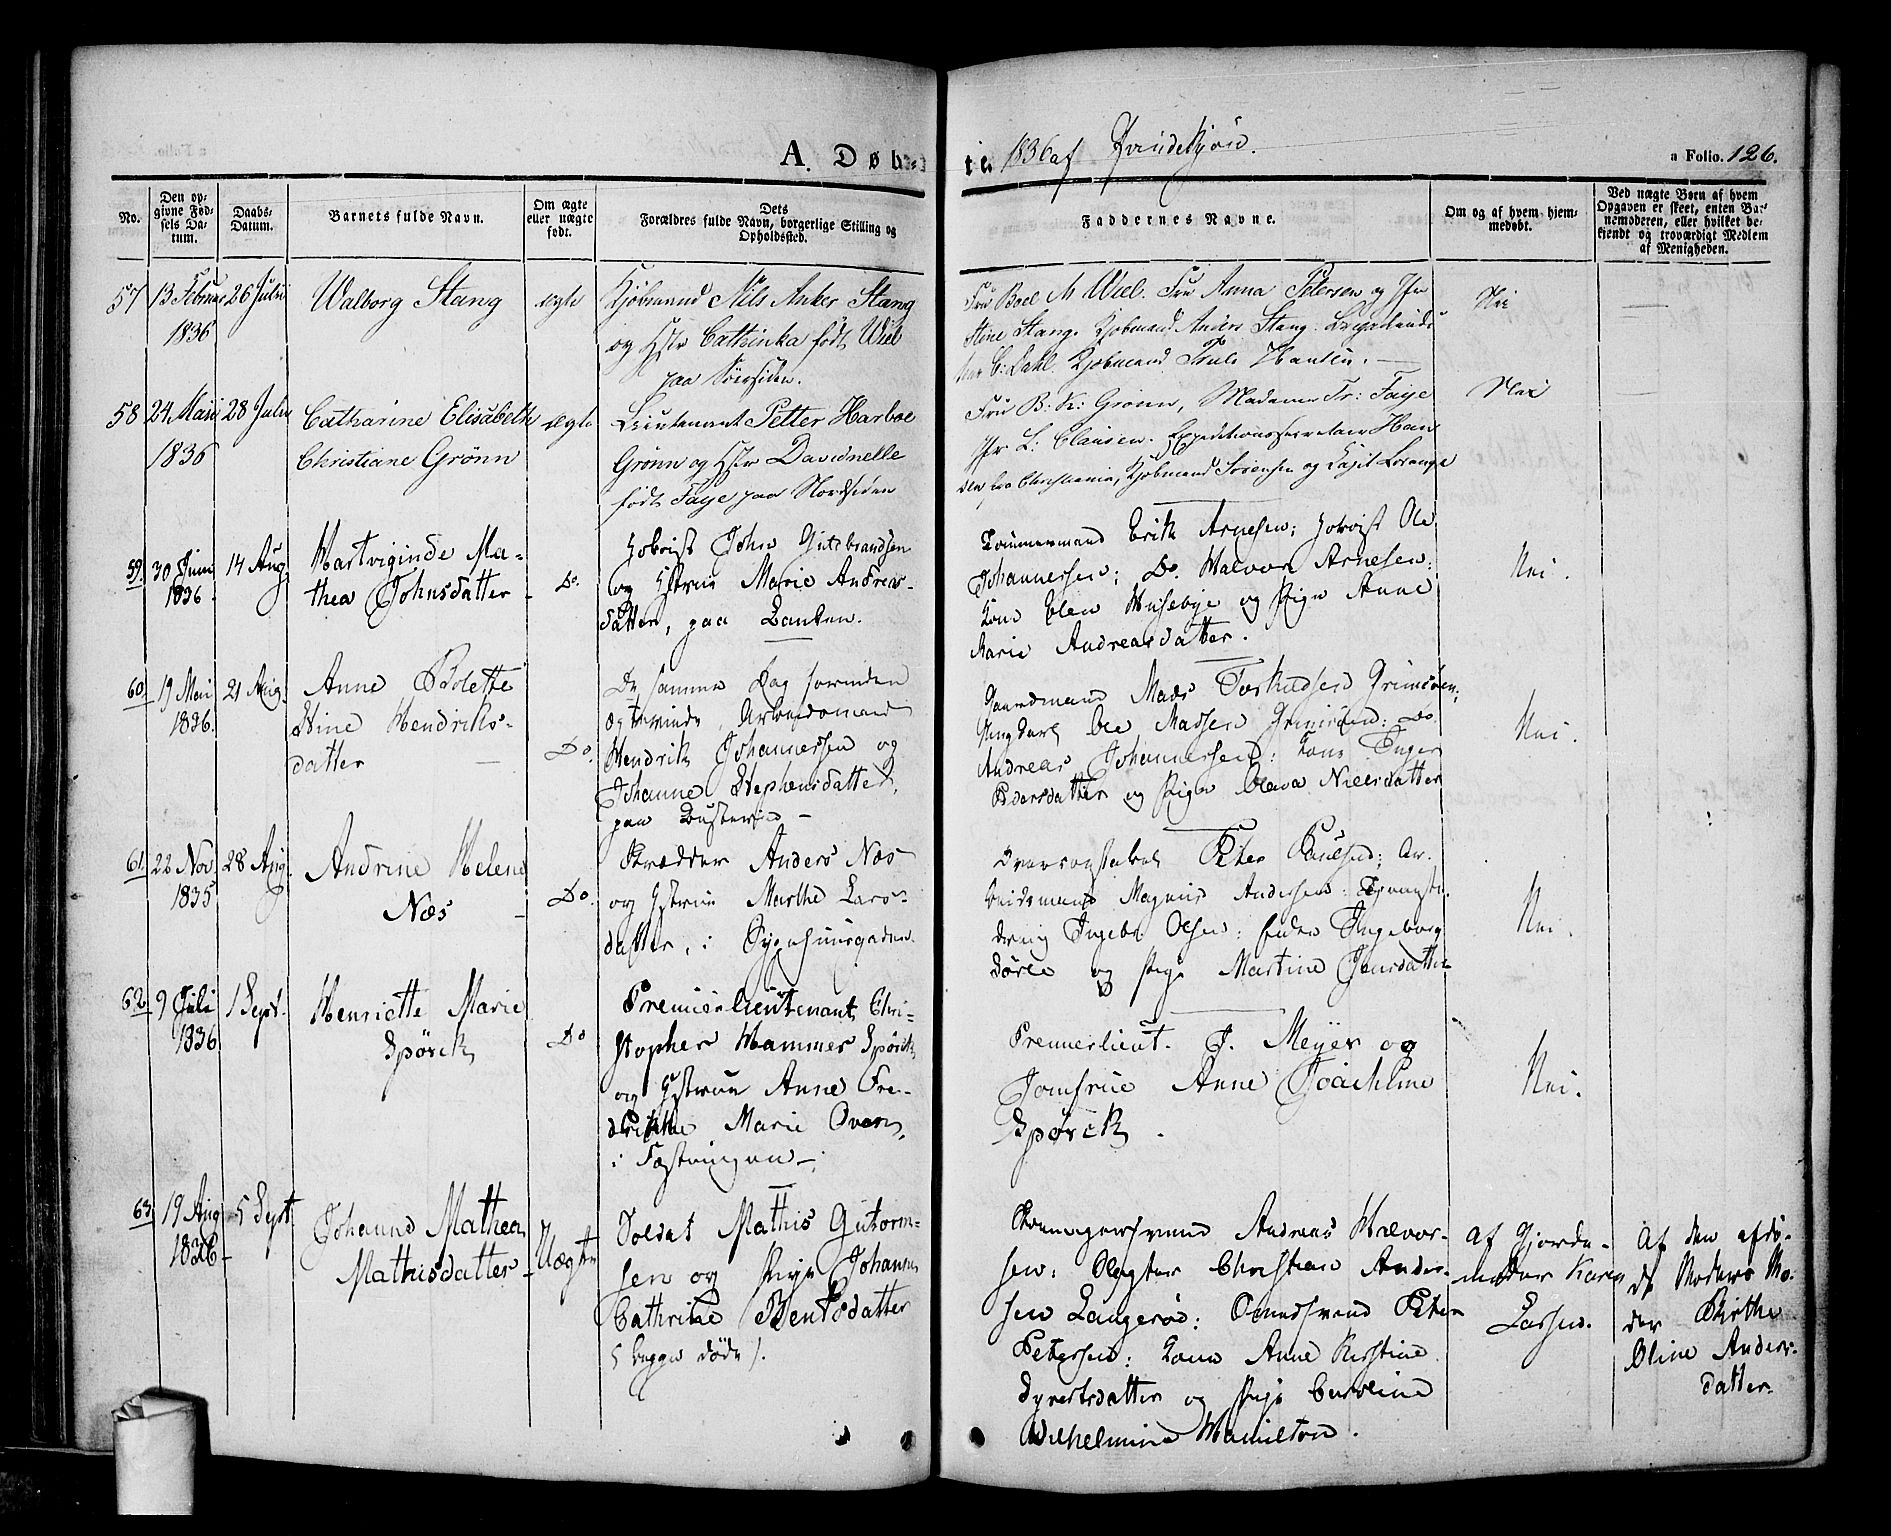 A. Døb-
te. 1836 af Qvindekjøn.
a Folio. 126.
No.
Den op-
givne Fød-
sels Da-
tum.
Daabs-
Datum.
Barnets fulde Navn.
Om ægte
eller uægte
født.
Dets
Forældres fulde Navn, borgerlige Stilling og
Opholdssted.
Faddernes Navne.
Om og af hvem hjem-
medøbt.
Ved uægte Børn af hvem
Opgaven er skeet, enten Bar-
nemoderen, eller hvilket be-
kjendt og troværdigt Medlem
af Menigheden.
57 13 Februar 1836
26 Julii
Walborg Stang
ægte
Kjøbmand Nils Anker Stang
og Hstr Cathinka født Wiel
paa Sørsiden.
Fru Boel M Wiel. Fru Anna Petersen og Jfr
Stine Stang. Kjøbmand Anders Stang.
C: Dahl. Kjøbmand Hansen.
Nei
58 24 Maii 1836
28 Julii
Catharine Elisabeth
Christiane Grønn
ægte
Lieutenant Petter Harboe
Grønn og Hstr Davidnelle
født Faye paa Nordsiden
Fru B: K: Grønn, Madame Fr: Faye
Jfr L: Clausen. Expeditionssecretair Han
sen fra Christiania, Kjøbmand Sørensen og Capit Lorange
Nei
59. 30 Juni 1836.
14 Aug.
Hartviginde Ma-
thea Johnsdatter
Do.
Hoboist John Gulbrandsen
og Hstrue Marie Andreas-
datter, paa Banken.
Tømmermand Erik Arnesen; Hoboist Ole
Johannessen; Do. Halvor Arnesen;
Kone Elen Huseby og Pige Anne
Marie Andreasdatter.
Nei.
60. 19 Mai 1836.
21 Aug.
Anne Bolette
Stine Hendriks-
datter
Do.
De samme Dag
Arbeidsmand
Hendrik Johannessen og
Johanne Stephensdatter,
paa
Gaardmand Mads Torkildsen Grimsøen;
Ungkarl Ole Madsen Grimsøen; Do.
Andreas Johannessen; Kone Inger
Pedersdatter og Pige Olava Nielsdatter
Nei.
61. 22 Nov. 1835
28 Aug.
Andrine Helene
Næs
Do.
Skrædder Anders Næs
og Hstrue Marthe Lars-
datter, i Sygehuusgaden.
Peter Paulsen; Ar-
beidsmand Magnus Andersen;
Ingebr. Olsen; Ingeborg
Sørlie og Pige Martine Jensdatter
Nei.
62. 9 Juli 1836
1 Sept.
Henriette Marie
Spørck
Do
Premierlieutenant Chri-
stopher Hammer Spørck
og Hstrue Anne Fre-
derikke Marie Oven,
i Fæstningen
Premierlieut. J. Meyer og
Jomfrue Anne Joachime
Spørck.
Nei.
63. 19 Aug 1836
5 Sept
Johanne Mathea
Mathisdatter
Uægte
Soldat Mathis Gutorm-
sen og Pige Johanne
Cathrine Bentsdatter
(begge døde).
Andreas Halvor-
sen; Christian Ander-
sen Langerød; Peter
Petersen; Kone Anne Kirstine
Syvertsdatter og Pige Caroline
Wilhelmine Hamilton.
af Gjorde-
moder Karen
Larsen.
Af den afdø-
de Moders Mo-
der Birthe
Oline Anders-
datter.